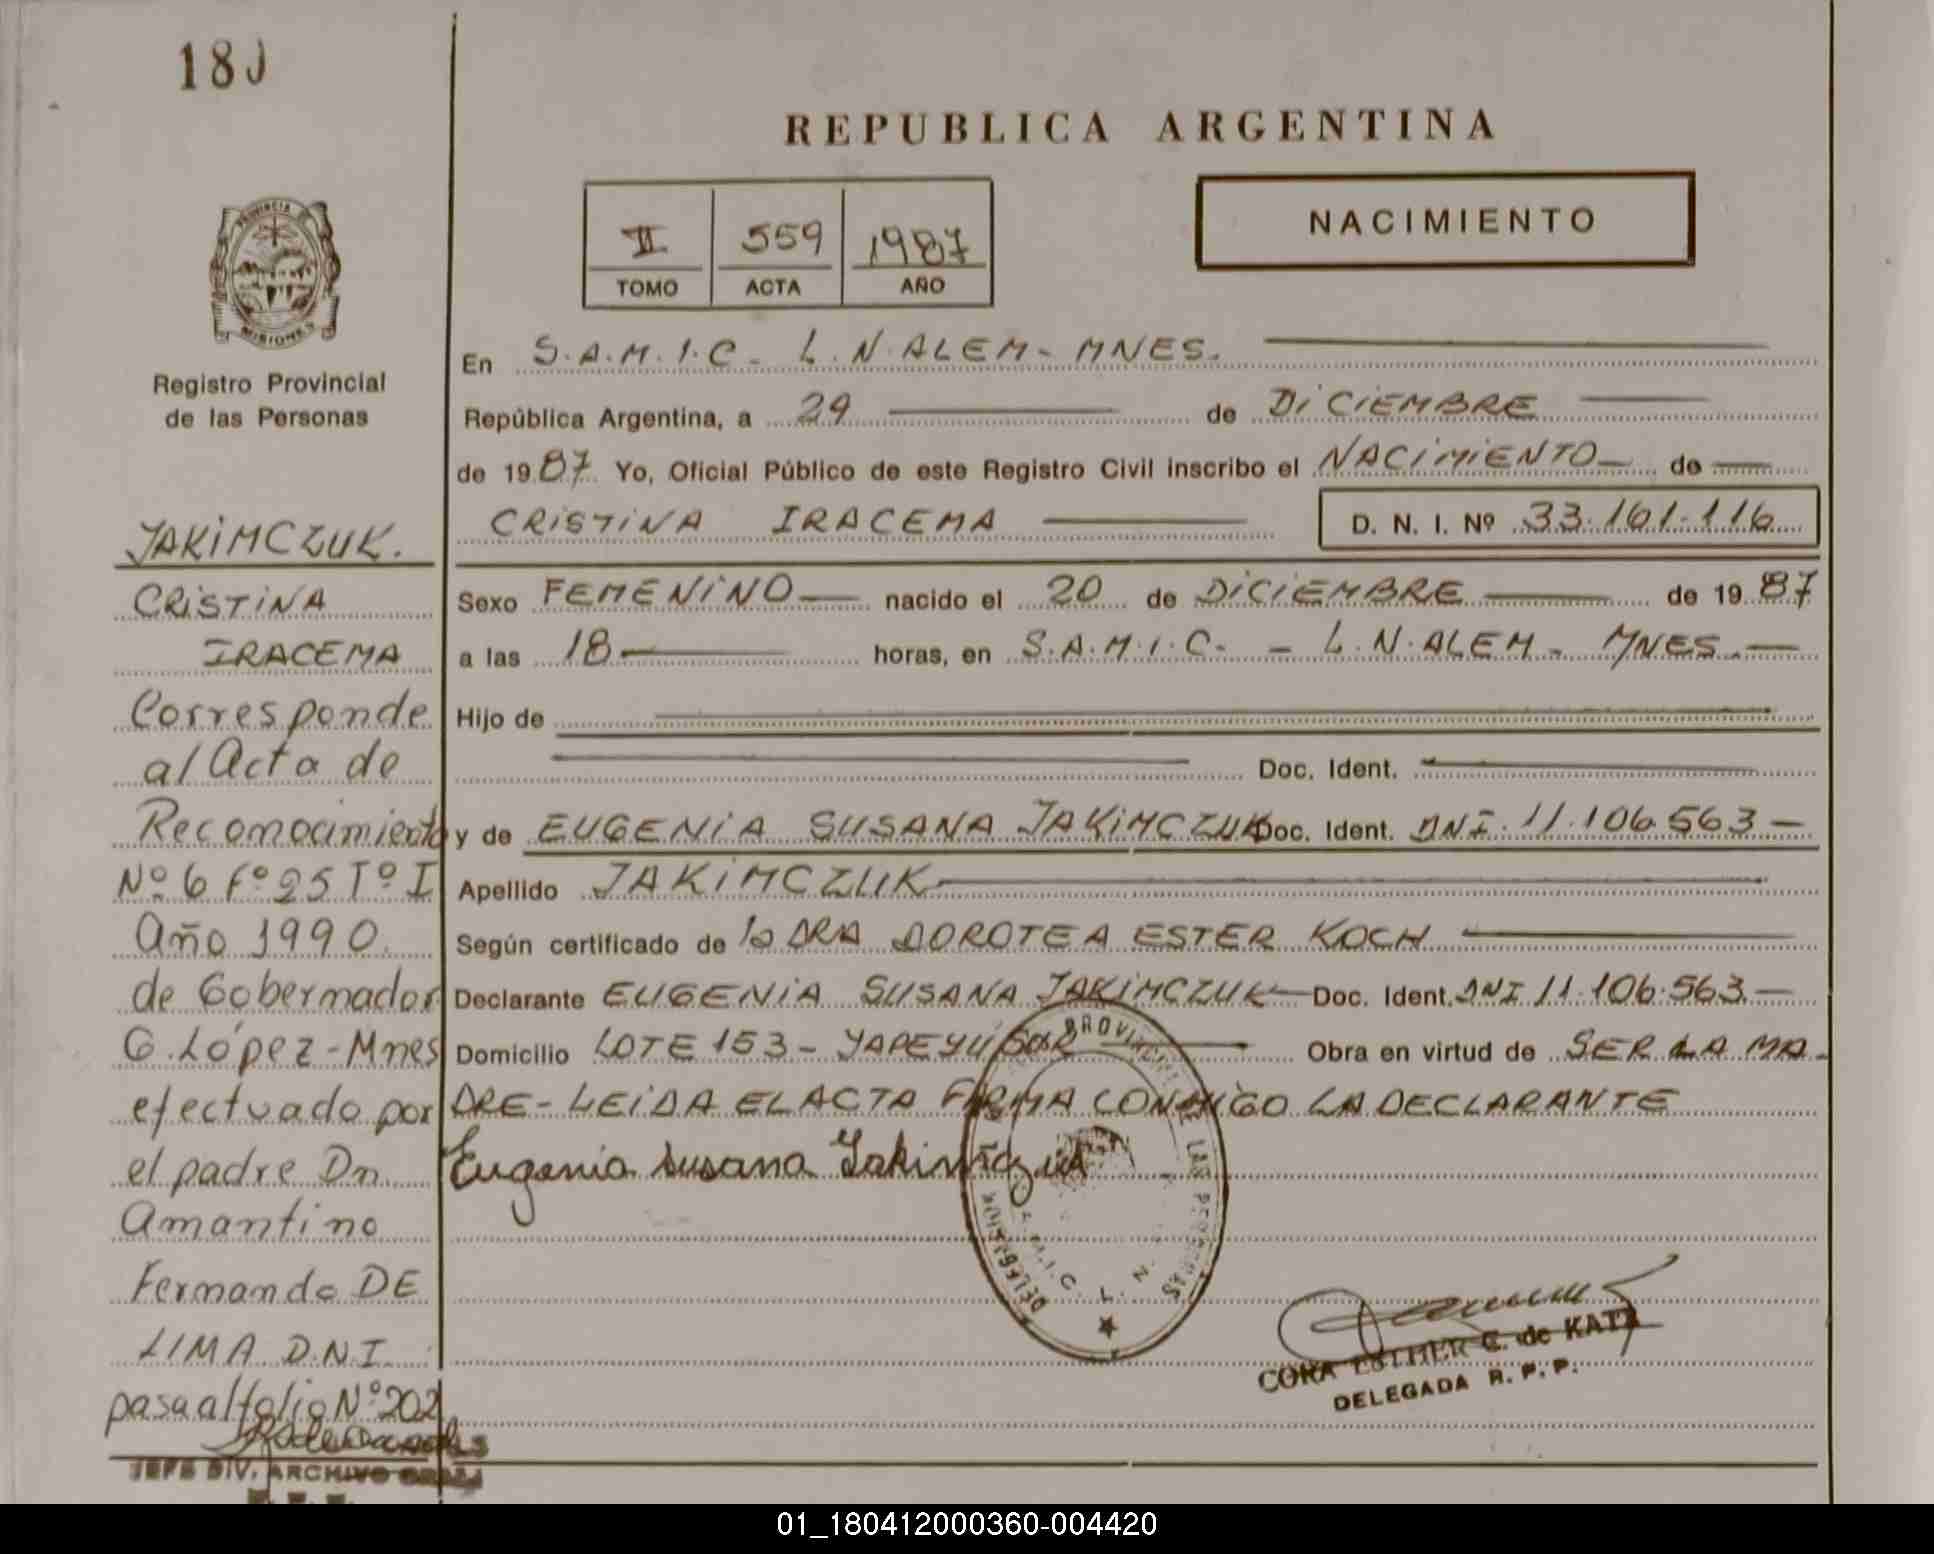 180
REPUBLICA ARGENTINA
NACIMIENTO
II 559 1987
TOMO ACTA AÑO
PROVINCIA DE
MISIONES
Registro Provincial
de las Personas
JAKIMCZUK.
CRISTINA
IRACEMA
Corresponde
al Acta de
Reconocimiento
Nº 6 Fº 25 Tº I
Año 1990.
de Gobernador
G. López - Mnes
efectuado por
el padre Dn.
Amantino
Fernando DE
LIMA D.N.I.
pasa al folio Nº 202
JEFE DIV. ARCHIVO GRAL
En S.A.M.I.C - L.N.ALEM - MNES.
República Argentina, a 29 de DICIEMBRE
de 1987. Yo, Oficial Público de este Registro Civil inscribo el NACIMIENTO de
CRISTINA IRACEMA D. N. I. Nº 33.161.116
Sexo FEMENINO nacido el 20 de DICIEMBRE de 1987
a las 18 horas, en S.A.M.I.C. - L.N.ALEM - MNES.
Hijo de
Doc. Ident.
y de EUGENIA SUSANA JAKIMCZUK Doc. Ident. DNI. 11.106.563
Apellido JAKIMCZUK
Según certificado de la DRA DOROTEA ESTER KOCH
Declarante EUGENIA SUSANA JAKIMCZUK Doc. Ident. DNI 11.106.563
Domicilio LOTE 153 - YAPEYÚ Obra en virtud de SER LA MA-
DRE - LEIDA EL ACTA FIRMA CONMIGO LA DECLARANTE
Eugenia Susana Jakimczuk
PROVINCIAL DE LAS PERSONAS
DELEGACION
L. N.
CORA ESTHER C. de KATZ
DELEGADA R. P. P.
01_180412000360-004420